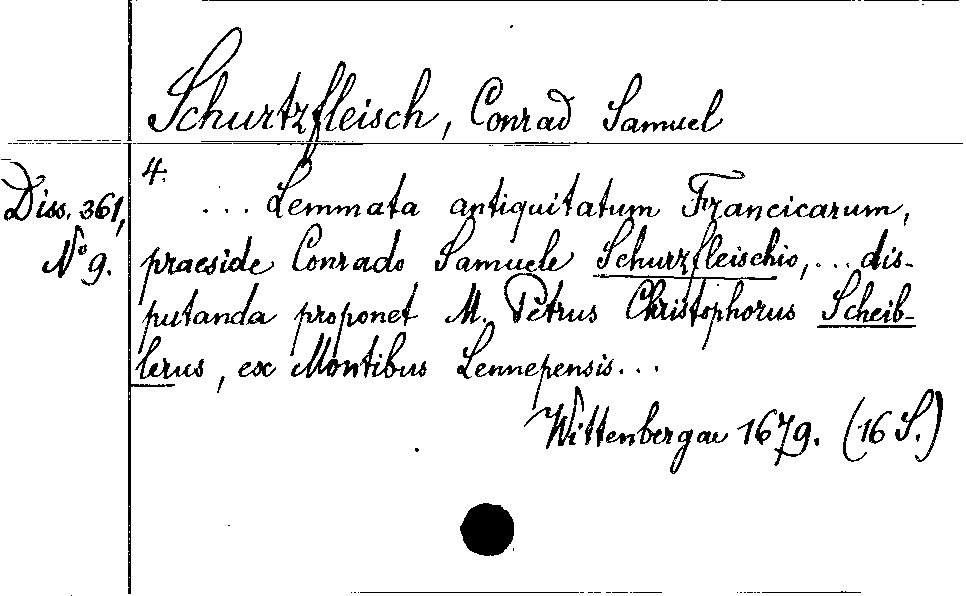 Schurtzfleisch, Conrad Samuel
4.
Diss. 361,
N° 9.
... Lemmata antiquitatum Francicarum,
praeside Conrado Samuele Schurzfleischio, ... dis-
putanda proponet M. Petrus Christophorus Scheib-
lerus, ex Montibus Lennepensis...
Wittenbergae 1679. (16 S.)